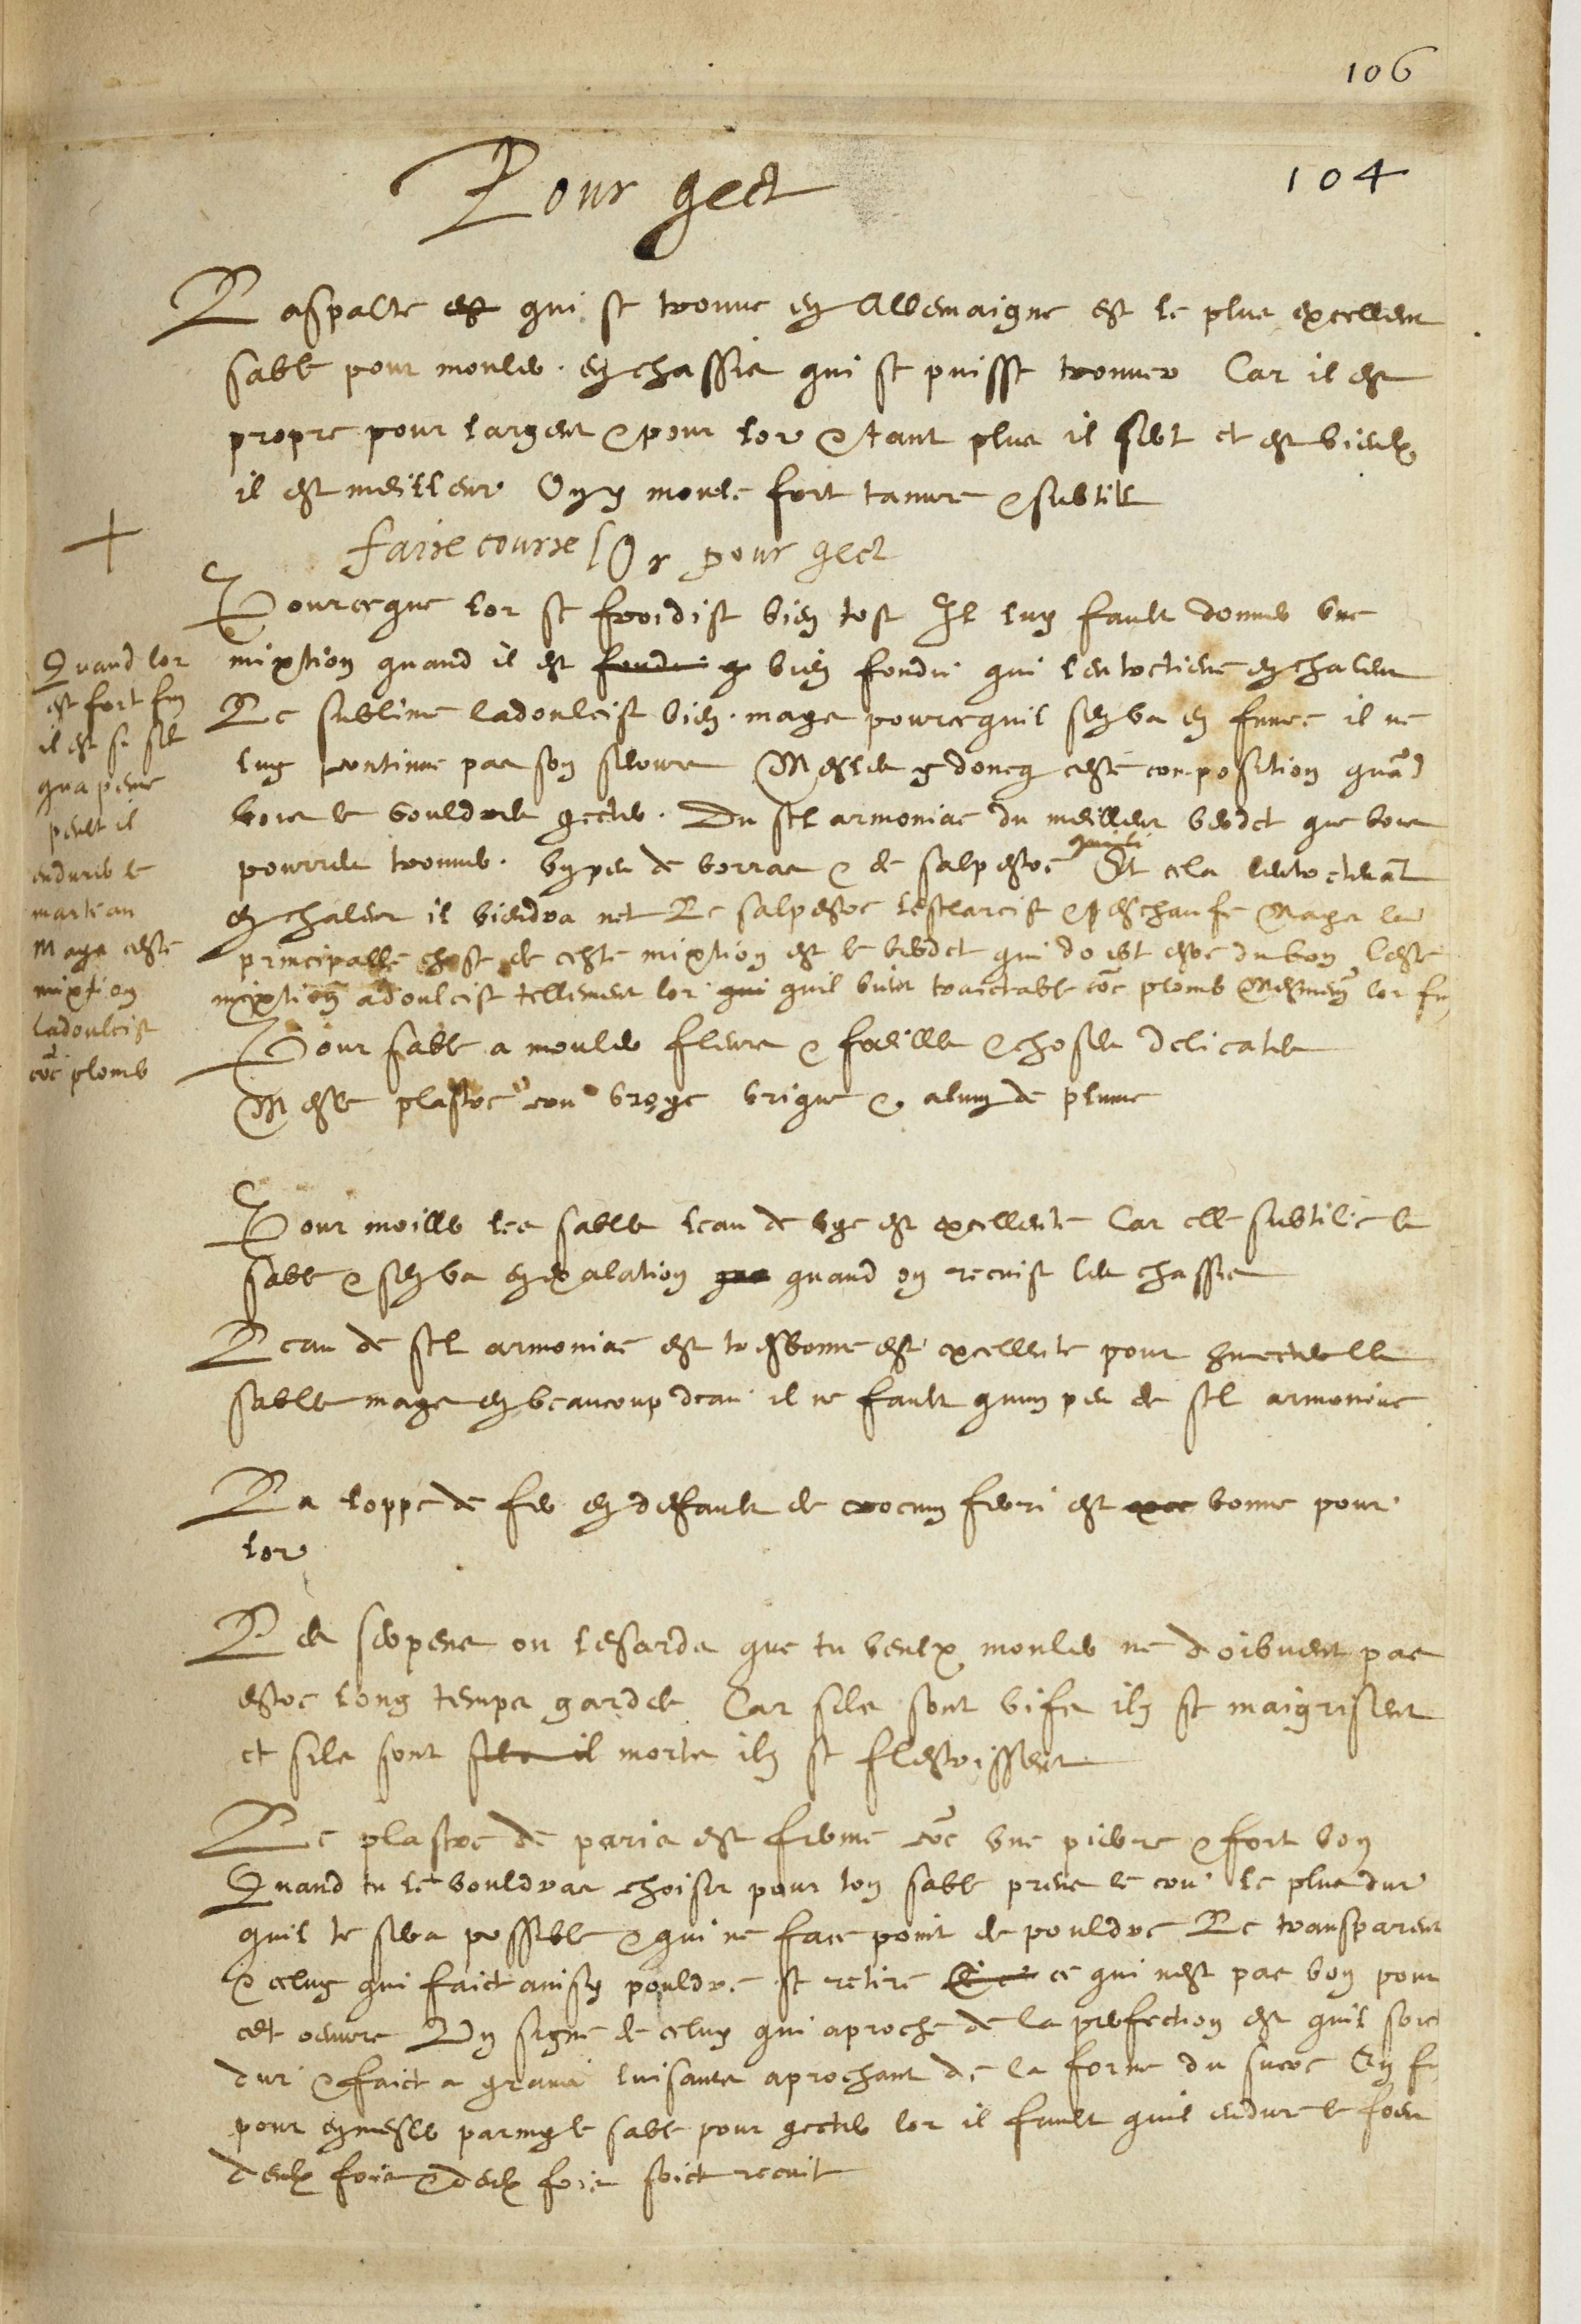 106
104
Pour gect
L aspalte est qui se trouve en Allemaigne est le plus excellent
sable pour mouler en chassis qui se puisse trouver Car il est
propre pour largent & pour lor & tant plus il sert et est vieulx
il est meilleur On y moule fort tanvre & subtil
+
faire courre lOr pour gect
Pource que lor se froidist bien tost Il luy fault donner une
mixtion quand il est fondu q bien fondu qui lentretiene en chaleur
Le sublime ladoulcist bien mays pource quil sen va en fumee il ne
luy continue pas son secours Mesles y doncq ceste composition quãd
vous le vouldres gecter Du sel armoniac du meilleur verdet que vous
pourres trouver un peu de borras & de salpestre Et cela lentretenãt
en chaleur il viendra net Le salpestre lesclarcist & leschaufe Mays la
principalle chose de ceste mixtion est le verdet qui doibt estre du bon Ceste
mixtion adoulcist tellement lor qui quil vient traictable coe plomb Mesmem lor fin
Quand lor
est fort fin
il est si sec
qua peine
peult il
endurer le
marteau
Mays ceste
mixtion
ladoulcist
coe plomb
Pour sable a mouler fleurs & foeilles & choses delicates
Mesle plastre cru broye brique & alum de plume
Pour moiller les sables leau de vye est excellente Car elle subtilie le
sable & sen va en exalation qua quand on recuist les chassis
Leau de sel armoniac est tres bonne est excellente pour humecter les
sables mays en beaucoup deau il ne fault quun peu de sel armoniac
La loppe de fer en default de crocum ferri est exce bonne pour
lor
Les serpens ou lesards que tu veulx mouler ne doibvent pas
estre long temps gardes Car sils sont vifs ilz se maigrissent
et sils sont morts ilz se flestrissent
Le plastre de paris est ferme coe une pierre & fort bon
Quand tu le vouldras choisir pour ton sable prens le cru le plus dur
quil te sera possible & qui ne face point de pouldre Le transparent
& celuy qui faict ainsy pouldre se retire ce qui nest pas bon pour
cet oeuvre Un signe de celuy qui aproche de la perfection est quil soict
dur & faict a grains luisants aprochant de la forme du sucre En fin
pour en mesler parmy le sable pour gecter lor il fault quil endure le foeu
deulx fois & deulx fois soict recuit